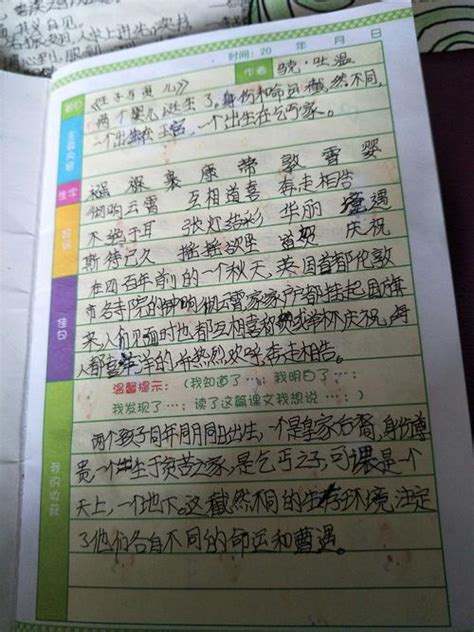 时间：20 年 月 日
作者 骁·吐温
《王子与贫儿》
主要内容
两个婴儿诞生了。身份和命运截然不同，
一个出生在王宫，一个出生在乞丐家。
生字
襁 褓 裹 康 蒂 敦 雪 婴
响彻云霄 互相道喜 奔走相告
不绝于耳 张灯结彩 华丽 遭遇
斯待已久 摇摇欲坠 道贺 庆祝
佳句
在四百年前的一个秋天，英国首都伦敦
市各寺院的钟响彻云霄家家户户都挂起国旗
来人们见面时也都互相喜 或举杯庆祝，
人都喜洋洋的 热烈欢呼奔走相告。
温馨提示：（我知道了…；我明白了…；
我发现了…；读了这篇课文我想说…；）
我的收获
两个孩子同年同月同日出生，一个是皇家后裔，身份尊
贵，一个生于贫苦之家，是乞丐之子，可 是一个
天上，一个地下。这截然不同的生存环境，注定
了他们各自不同的命运和遭遇。